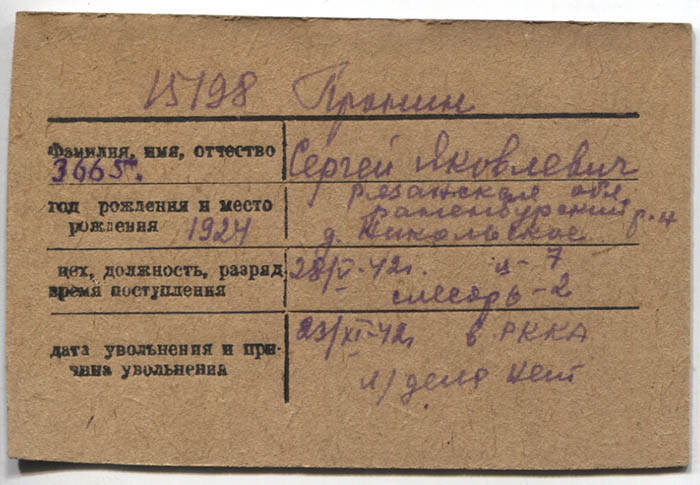 15198 Пронин
Фамилия, имя, отчество
3665.
Сергей Яковлевич
год рождения и место
рождения 1924
Рязанская обл.
Раненбургский р-н
д. Никольское
цех, должность, разряд
время поступления
28/V-42г. ц-7
слесарь-2
дата увольнения и при-
чина увольнения
23/XI-42г. в РККА
л/дела нет